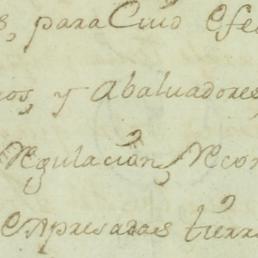 s, para Cuio efe
os, y Abaluadores
Regulacion, Recon
expresadas tierr